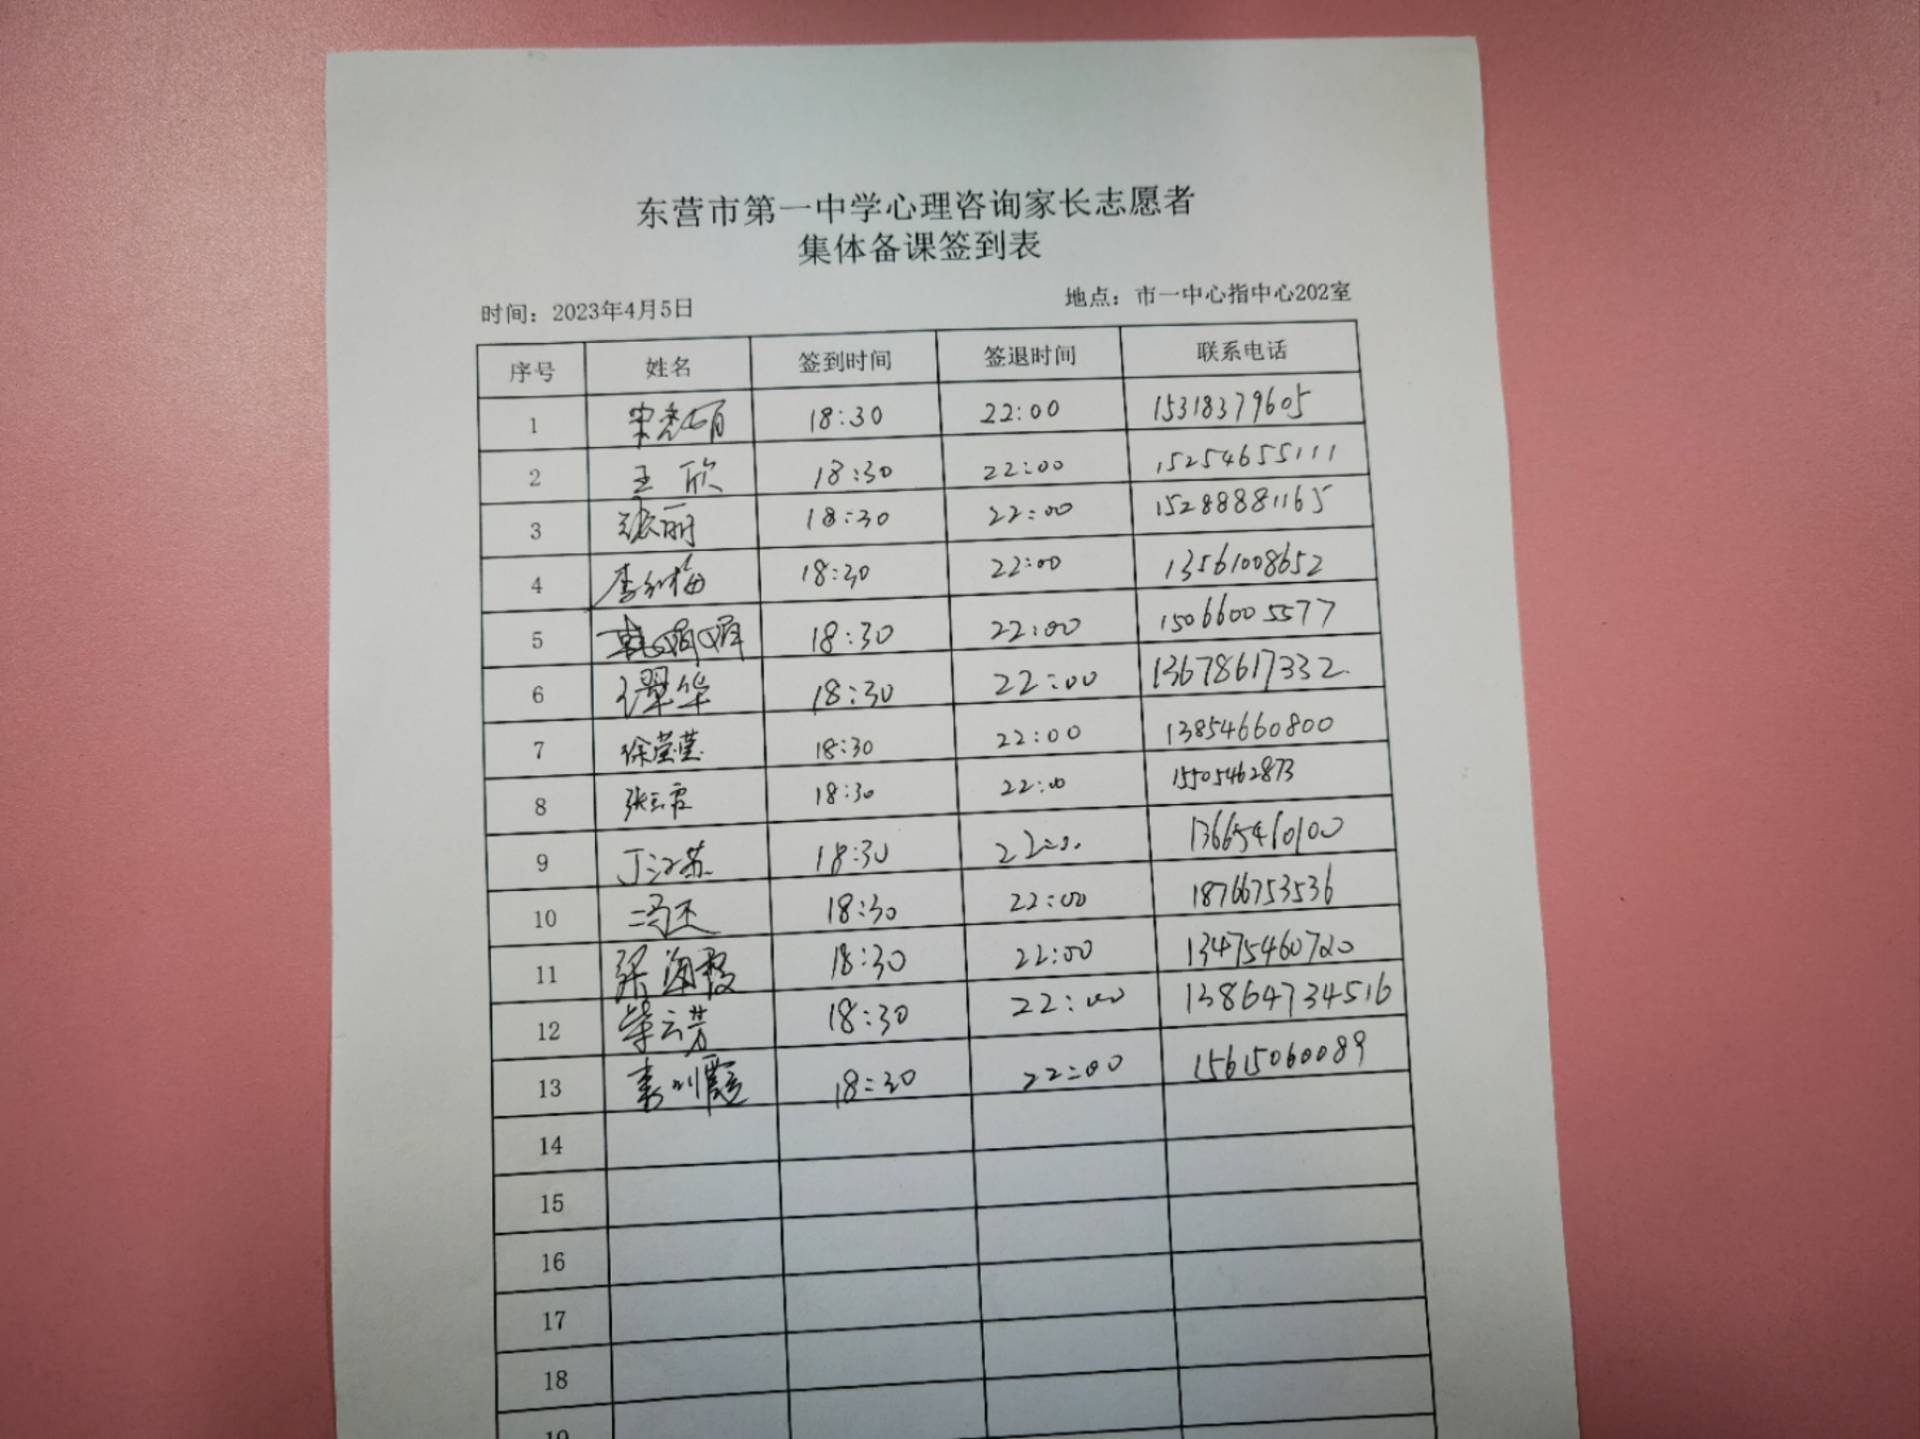 东营市第一中学心理咨询家长志愿者
集体备课签到表
时间：2023年4月5日 地点：市一中心指中心202室
序号 姓名 签到时间 签退时间 联系电话
1 18:30 22:00 15318379605
2 王欣 18:30 22:00 15254655111
3 张丽 18:30 22:00 15288881165
4 李红梅 18:30 22:00 13561008652
5 18:30 22:00 15066005577
6 谭华 18:30 22:00 13678617332
7 徐莹莹 18:30 22:00 13854660800
8 张云霞 18:30 22:00 15505462873
9 丁江燕 18:30 22:00 13665460100
10 冯杰 18:30 22:00 18766753536
11 梁海霞 18:30 22:00 13475460720
12 柴云芳 18:30 22:00 13864734516
13 18:30 22:00 15615060089
14
15
16
17
18
19